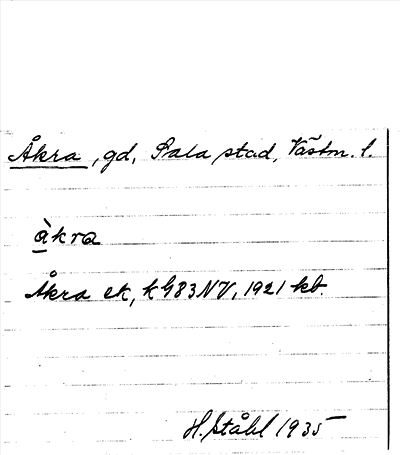 Åkra, gd, Sala stad, Västm. l.
åkra
Åkra ek, k G83NV, 1921 kb.
H. Ståhl 1935